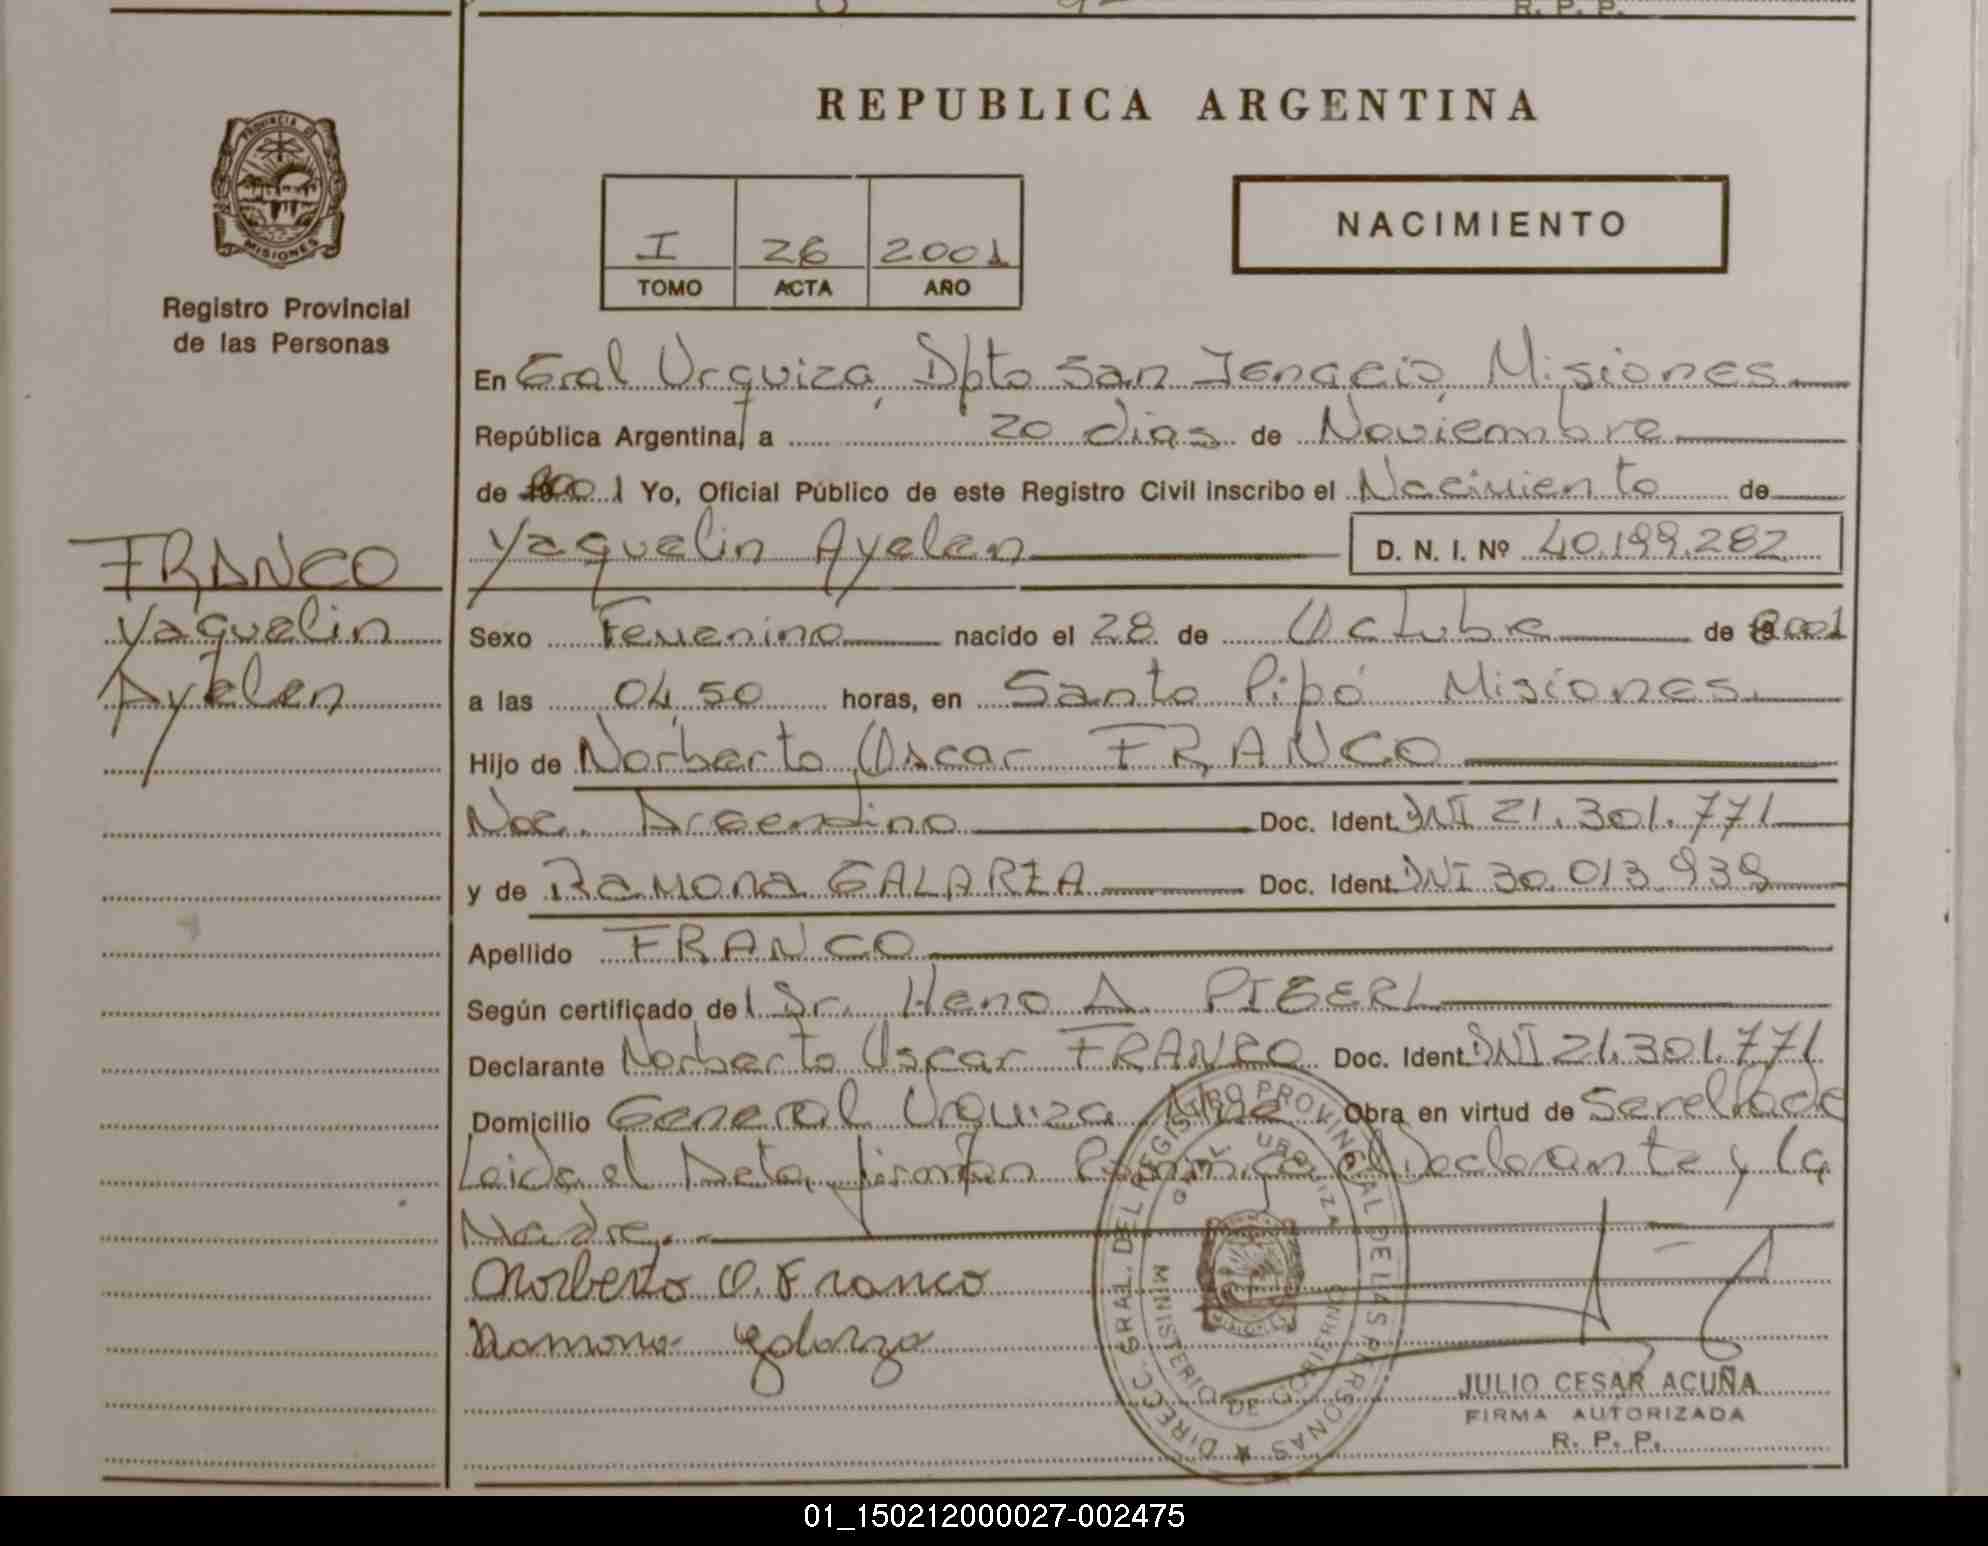 R. P. P.
REPUBLICA ARGENTINA
PROVINCIA DE MISIONES
I 26 2001
TOMO ACTA AÑO
NACIMIENTO
Registro Provincial
de las Personas
En Gral Urquiza, Dpto San Ignacio, Misiones
República Argentina, a 20 dias de Noviembre
de 2001 Yo, Oficial Público de este Registro Civil inscribo el Nacimiento de
Yaquelin Ayelen D. N. I. Nº 40.199.282
FRANCO
Yaquelin
Ayelen
Sexo Femenino nacido el 28 de Octubre de 2001
a las 04,50 horas, en Santo Pipó Misiones
Hijo de Norberto Oscar FRANCO
Nac. Argentino Doc. Ident. DNI 21.301.771
y de Ramona GALARZA Doc. Ident. DNI 30.013.939
Apellido FRANCO
Según certificado del Dr. Heno A. PIGERL
Declarante Norberto Oscar FRANCO Doc. Ident. DNI 21.301.771
Domicilio General Urquiza Mnes Obra en virtud de
Leida el Acta, firman Conmigo el Declarante y la
Madre.
Norberto O. Franco
Ramona Galarza
DIRECC. GRAL. DEL REGISTRO PROVINCIAL DE LAS PERSONAS
GRAL URQUIZA
MINISTERIO DE GOBIERNO
JULIO CESAR ACUÑA
FIRMA AUTORIZADA
R. P. P.
01_150212000027-002475